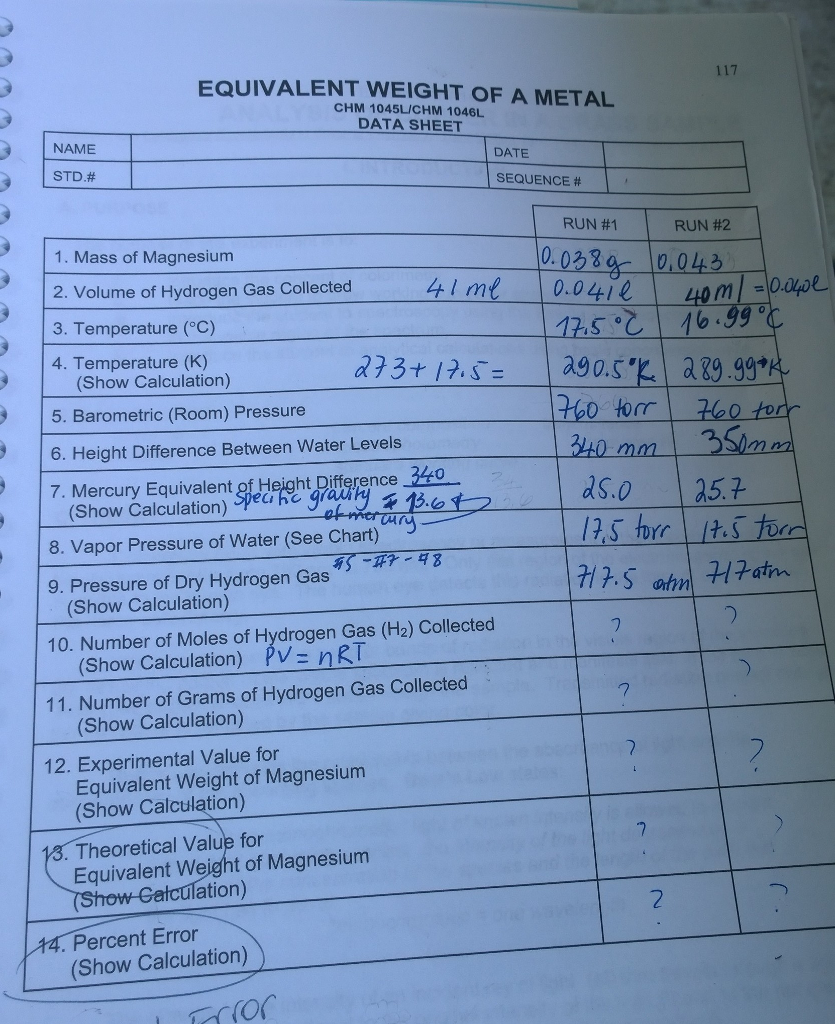 117
EQUIVALENT WEIGHT OF A METAL
CHM 1045L/CHM 1046L
DATA SHEET
NAME DATE
STD.# SEQUENCE #
RUN #1 RUN #2
1. Mass of Magnesium 0.038g 0.043
2. Volume of Hydrogen Gas Collected 41 ml 0.041l 40ml = 0.040l
3. Temperature (°C) 17.5 °C 16.99 °C
4. Temperature (K) 273 + 17.5 = 290.5°K 289.99°K
(Show Calculation)
5. Barometric (Room) Pressure 760 torr 760 torr
6. Height Difference Between Water Levels 340 mm 350mm
7. Mercury Equivalent of Height Difference 340 25.0 25.7
(Show Calculation) Specific gravity 13.6
of mercury
8. Vapor Pressure of Water (See Chart) 17,5 torr 17.5 torr
#5 - #7 - #8
9. Pressure of Dry Hydrogen Gas 717.5 atm 717 atm
(Show Calculation)
10. Number of Moles of Hydrogen Gas (H₂) Collected ? ?
(Show Calculation) PV = nRT
11. Number of Grams of Hydrogen Gas Collected ? ?
(Show Calculation)
12. Experimental Value for ? ?
Equivalent Weight of Magnesium
(Show Calculation)
13. Theoretical Value for ? ?
Equivalent Weight of Magnesium
(Show Calculation)
14. Percent Error ? ?
(Show Calculation)
Error